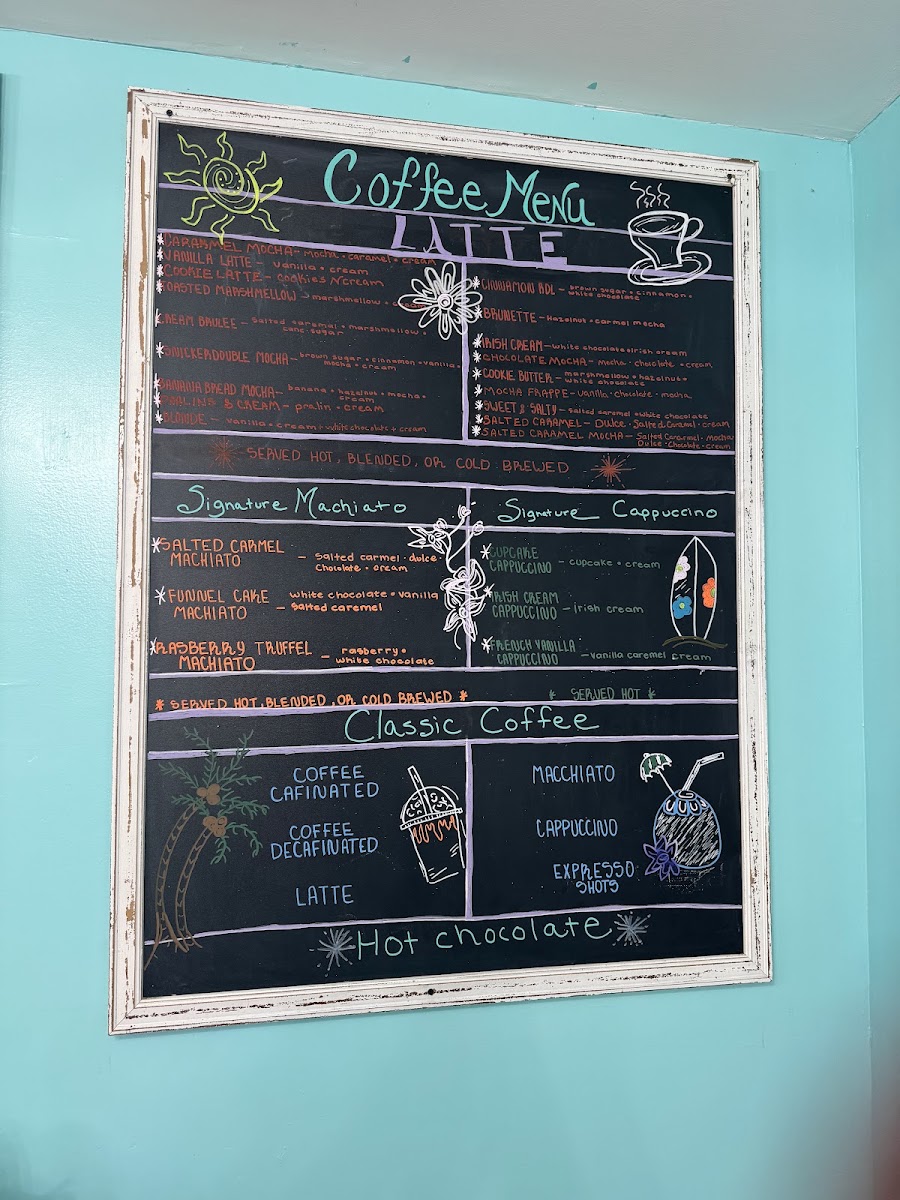 Coffee Menu
LATTE
*CARAKMEL MOCHA- mocha • caramel • cream
*VANILLA LATTE - vanilla • cream
*COOKIE LATTE- cookies N cream
*TOASTED MARSHMELLOW - marshmellow •
*CREAM BRULEE - salted caramel • marshmellow •
cane sugar
*SNICKERDOUBLE MOCHA- brown sugar • cinnamon • vanilla •
mocha • cream
*BANANA BREAD MOCHA- banana • hazelnut • mocha •
cream
*PRALINS & CREAM- pralin • cream
*BLONDIE - vanilla • cream • white chocolate • cream
*CINNAMON - brown sugar • cinnamon •
white chocolate
*BRUNETTE- Hazelnut • carmel mocha
*IRISH CREAM- white chocolate • irish cream
*CHOCOLATE MOCHA- mocha • chocolate • cream
*COOKIE BUTTER- marshmellow • hazelnut •
white chocolate
*MOCHA FRAPPE- vanilla • chocolate • mocha
*SWEET & SALTY- salted caramel • white chocolate
*SALTED CARAMEL- Dulce • Salted Caramel • cream
*SALTED CARAMEL MOCHA- Salted Cararmel • mocha
Dulce • Chocolate • cream
SERVED HOT, BLENDED, OR COLD BREWED
Signature Machiato
*SALTED CARMEL
MACHIATO - salted carmel • dulce •
chocolate • cream
*FUNNEL CAKE
MACHIATO - white chocolate • vanilla
salted caramel
*RASBERRY TRUFFEL
MACHIATO - rasberry •
white chocolate
* SERVED HOT, BLENDED, OR COLD BREWED *
Signature Cappuccino
*CUPCAKE
CAPPUCCINO - cupcake • cream
*IRISH CREAM
CAPPUCCINO - irish cream
*FRENCH VANILLA
CAPPUCCINO - vanilla caremel cream
* SERVED HOT *
Classic Coffee
COFFEE
CAFINATED
COFFEE
DECAFINATED
LATTE
MACCHIATO
CAPPUCCINO
EXPRESSO
SHOTS
Hot chocolate